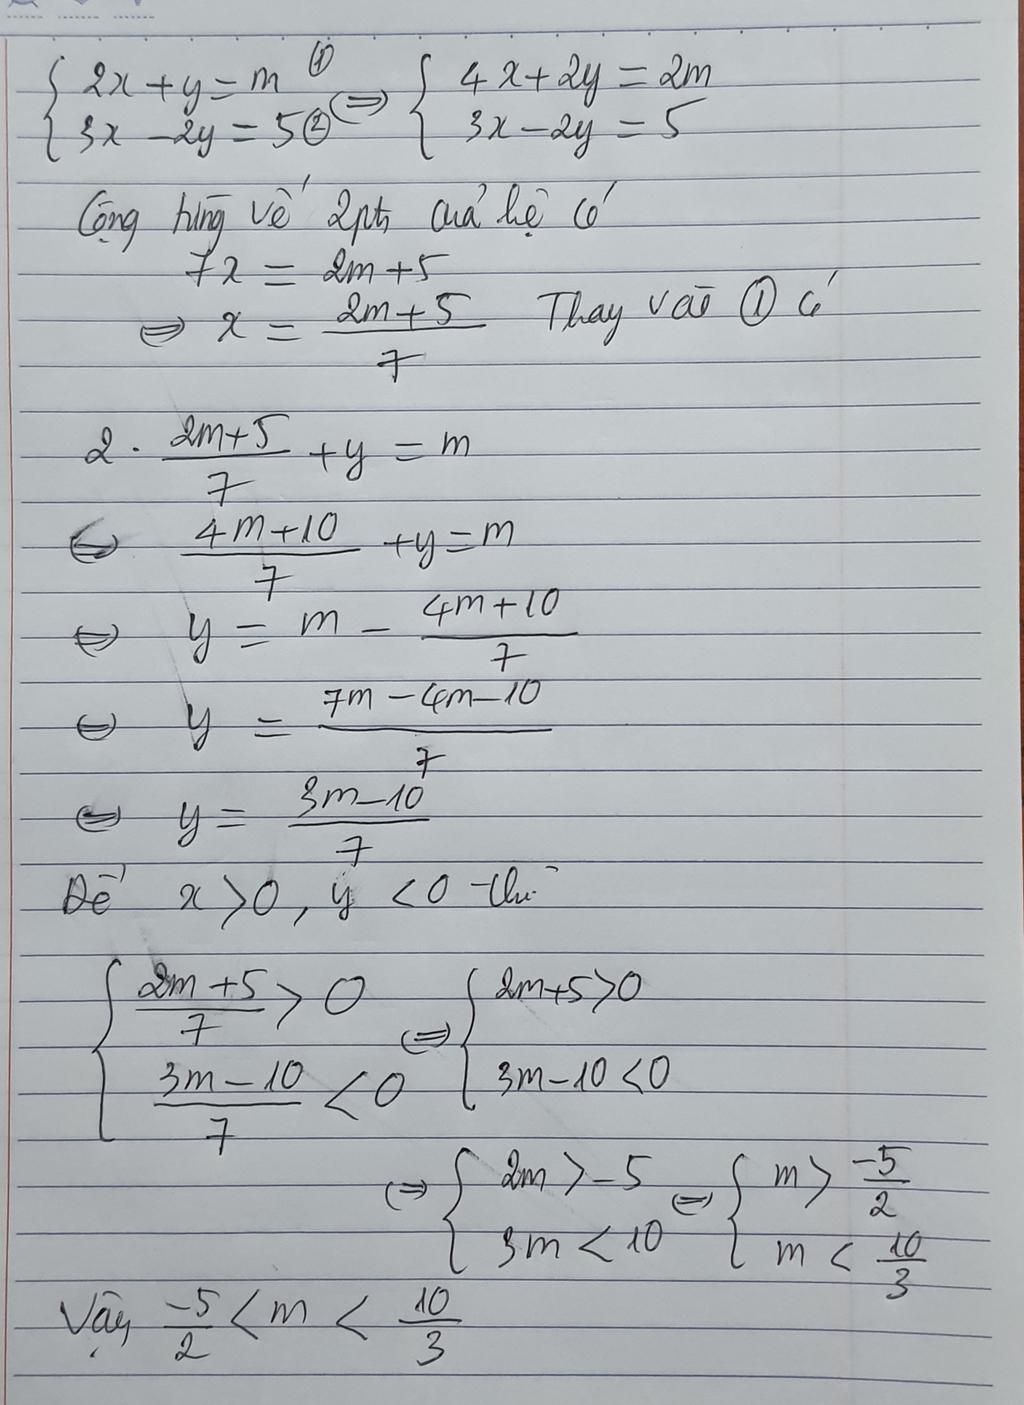 { 2x + y = m ① ⇔ { 4x + 2y = 2m
{ 3x − 2y = 5 ② { 3x − 2y = 5
Cộng từng vế 2pt của hệ có
7x = 2m + 5
⇔ x = (2m + 5)/7 Thay vào ① có
2 · (2m + 5)/7 + y = m
⇔ (4m + 10)/7 + y = m
⇔ y = m − (4m + 10)/7
⇔ y = (7m − 4m − 10)/7
⇔ y = (3m − 10)/7
Để x > 0, y < 0 thì
{ (2m + 5)/7 > 0 ⇔ { 2m + 5 > 0
{ (3m − 10)/7 < 0 { 3m − 10 < 0
⇔ { 2m > −5 ⇔ { m > −5/2
{ 3m < 10 { m < 10/3
Vậy −5/2 < m < 10/3